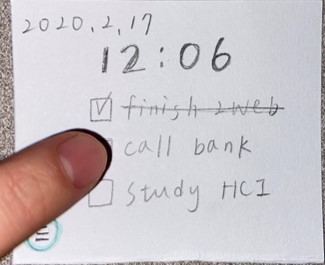 2020.2.17
12:06
finish 2web
call bank
study HCI